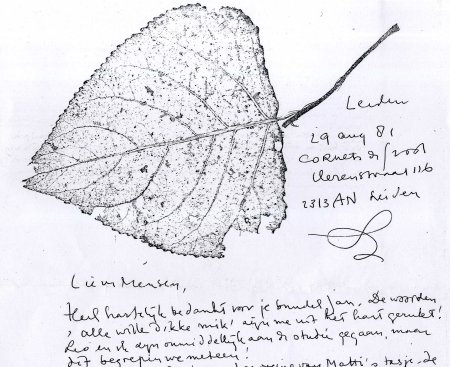 Leiden
29 aug 81
Cornets de Groot
Herenstraat 116
2313 AN Leiden
Lieve Mensen,
Heel hartelijk bedankt voor je bundel Jan. De woorden
'alle wille dikke mik' zijn me uit het hart gerukt!
Leo en ik zijn onmiddellijk aan de studie gegaan, maar
dit begrepen we meteen!
van Matti's tasje. de